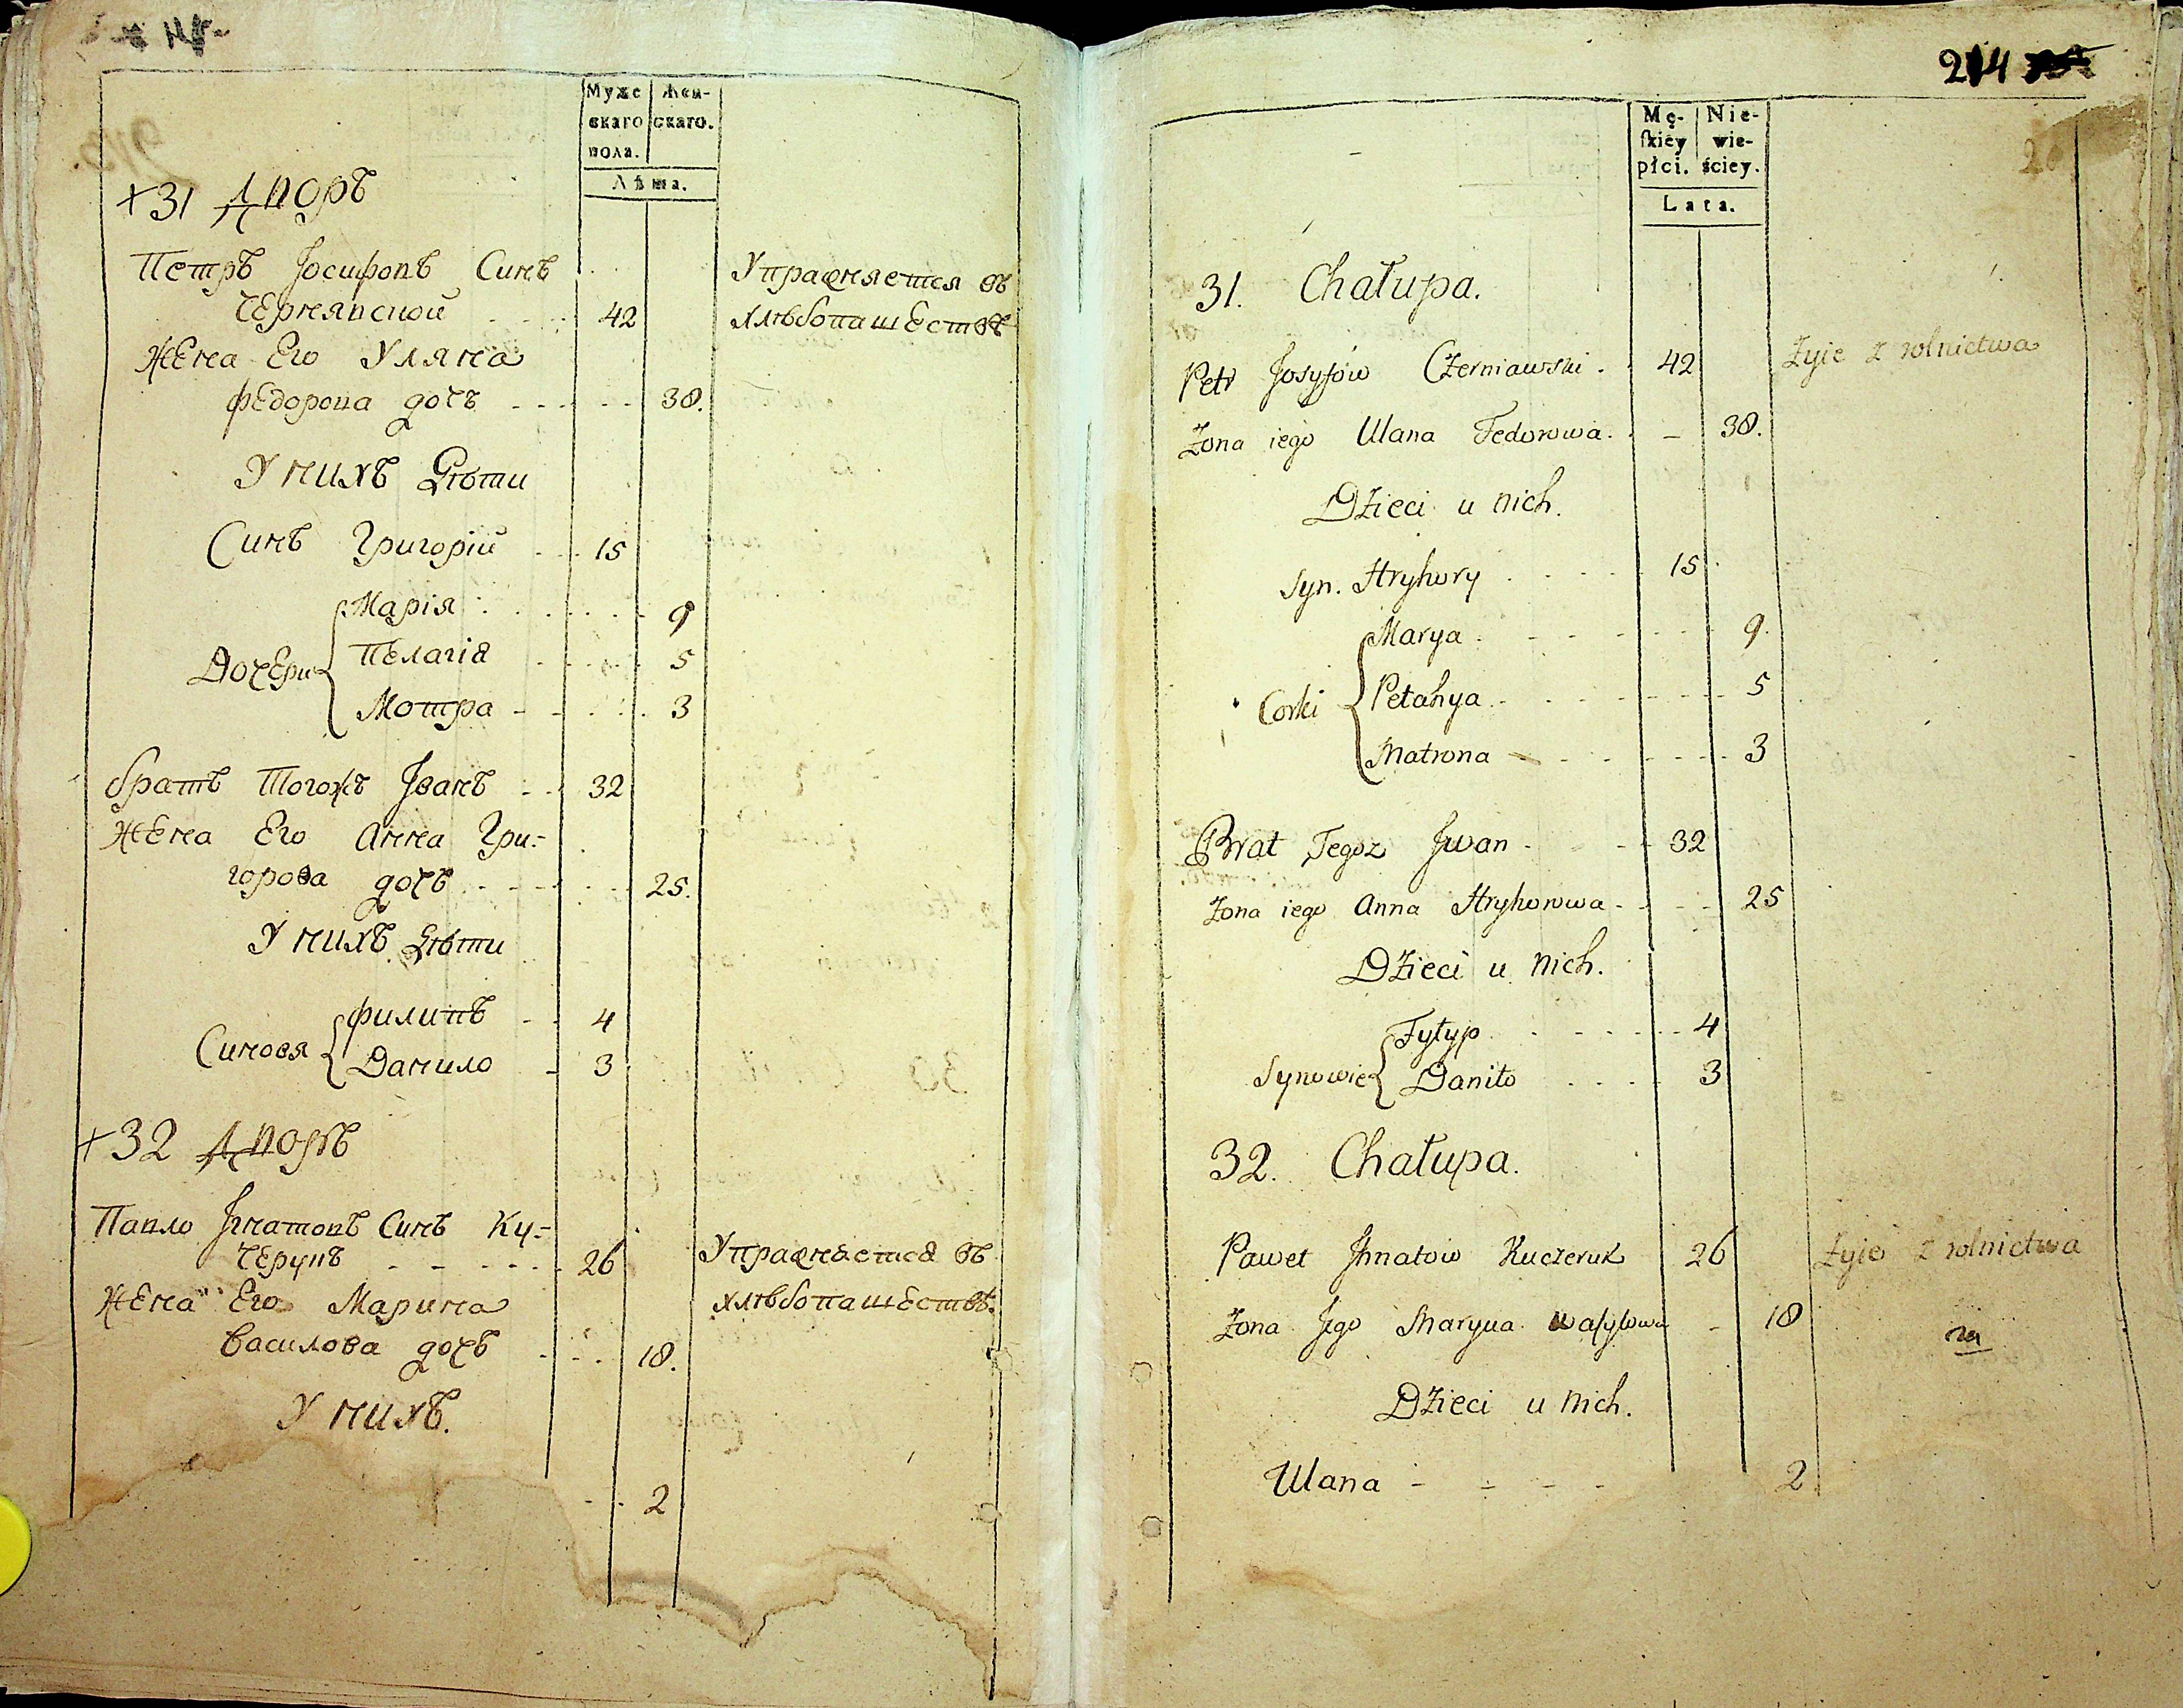 Муже
скаго
пола.
Жен-
скаго.
Лѣта.
+31 Дворъ
Петръ Іосифовъ Синъ
Чернявской 42
Упражняется въ
хлѣбопашествѣ
Жена Его Уляна
Федорова дочъ 38.
У нихъ Дѣти
Синъ Григорій 15
Марія 9
Дочери
Пелагія 5
Мотра 3
братъ Тогожъ Іванъ 32
Жена Его Анна Гри-
горова дочъ 25.
У нихъ Дѣти
Филипъ 4
Синовя
Данило 3
+32 Дворъ
Павло Ігнатовъ Синъ Ку-
черукъ 26
Упражняется въ
хлѣбопашествѣ.
Жена Его Марина
Василова дочъ 18.
У нихъ.
2
214
Mę-
ſkiéy
płci.
Nie-
wie-
ściey.
Lata.
31. Chałupa.
Petr Josyfów Czerniawski 42 Żyie z rolnictwa
Żona iego Ulana Fedorowa 38.
Dzieci u nich.
Syn. Hryhory 15
Marya 9.
Corki
Pełahya 5
Matrona 3
Brat Tegoż Jwan 32
Żona iego Anna Hryhorowa 25
Dzieci u nich.
Fyłyp 4
Synowie
Daniło 3
32. Chałupa.
Paweł Jhnatow Kuczeruk 26 Żyie z rolnictwa
Żona Jego Maryna Wasylowa 18
Dzieci u nich.
Ulana 2